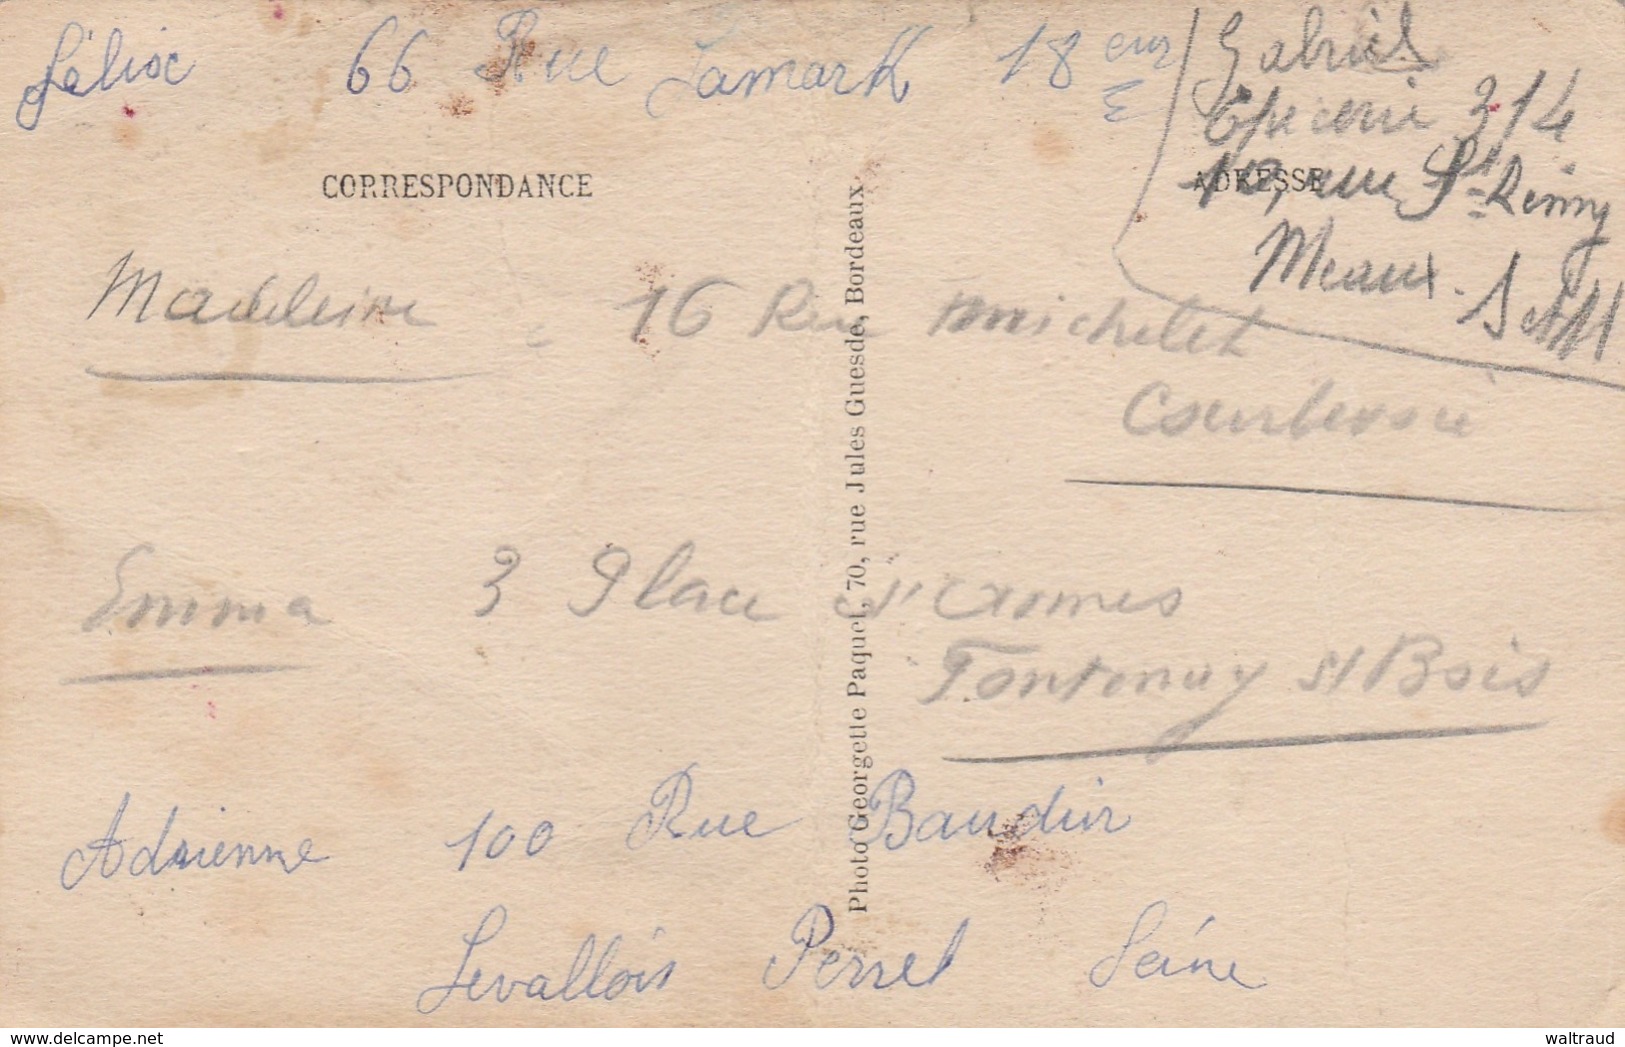 Félix 66 Rue Lamark 18 eme
Gabriel
Epicerie 314
rue St Rémy
Meaux - S et M
CORRESPONDANCE
ADRESSE
Madeleine 16 Rue michelet
Courbevoie
Emma 3 Place d'armes
Fontenay s/ Bois
Adrienne 100 Rue Baudin
Levallois Perret Seine
Photo Georgette Paquet, 70, rue Jules Guesde, Bordeaux
delcampe.net
waltraud